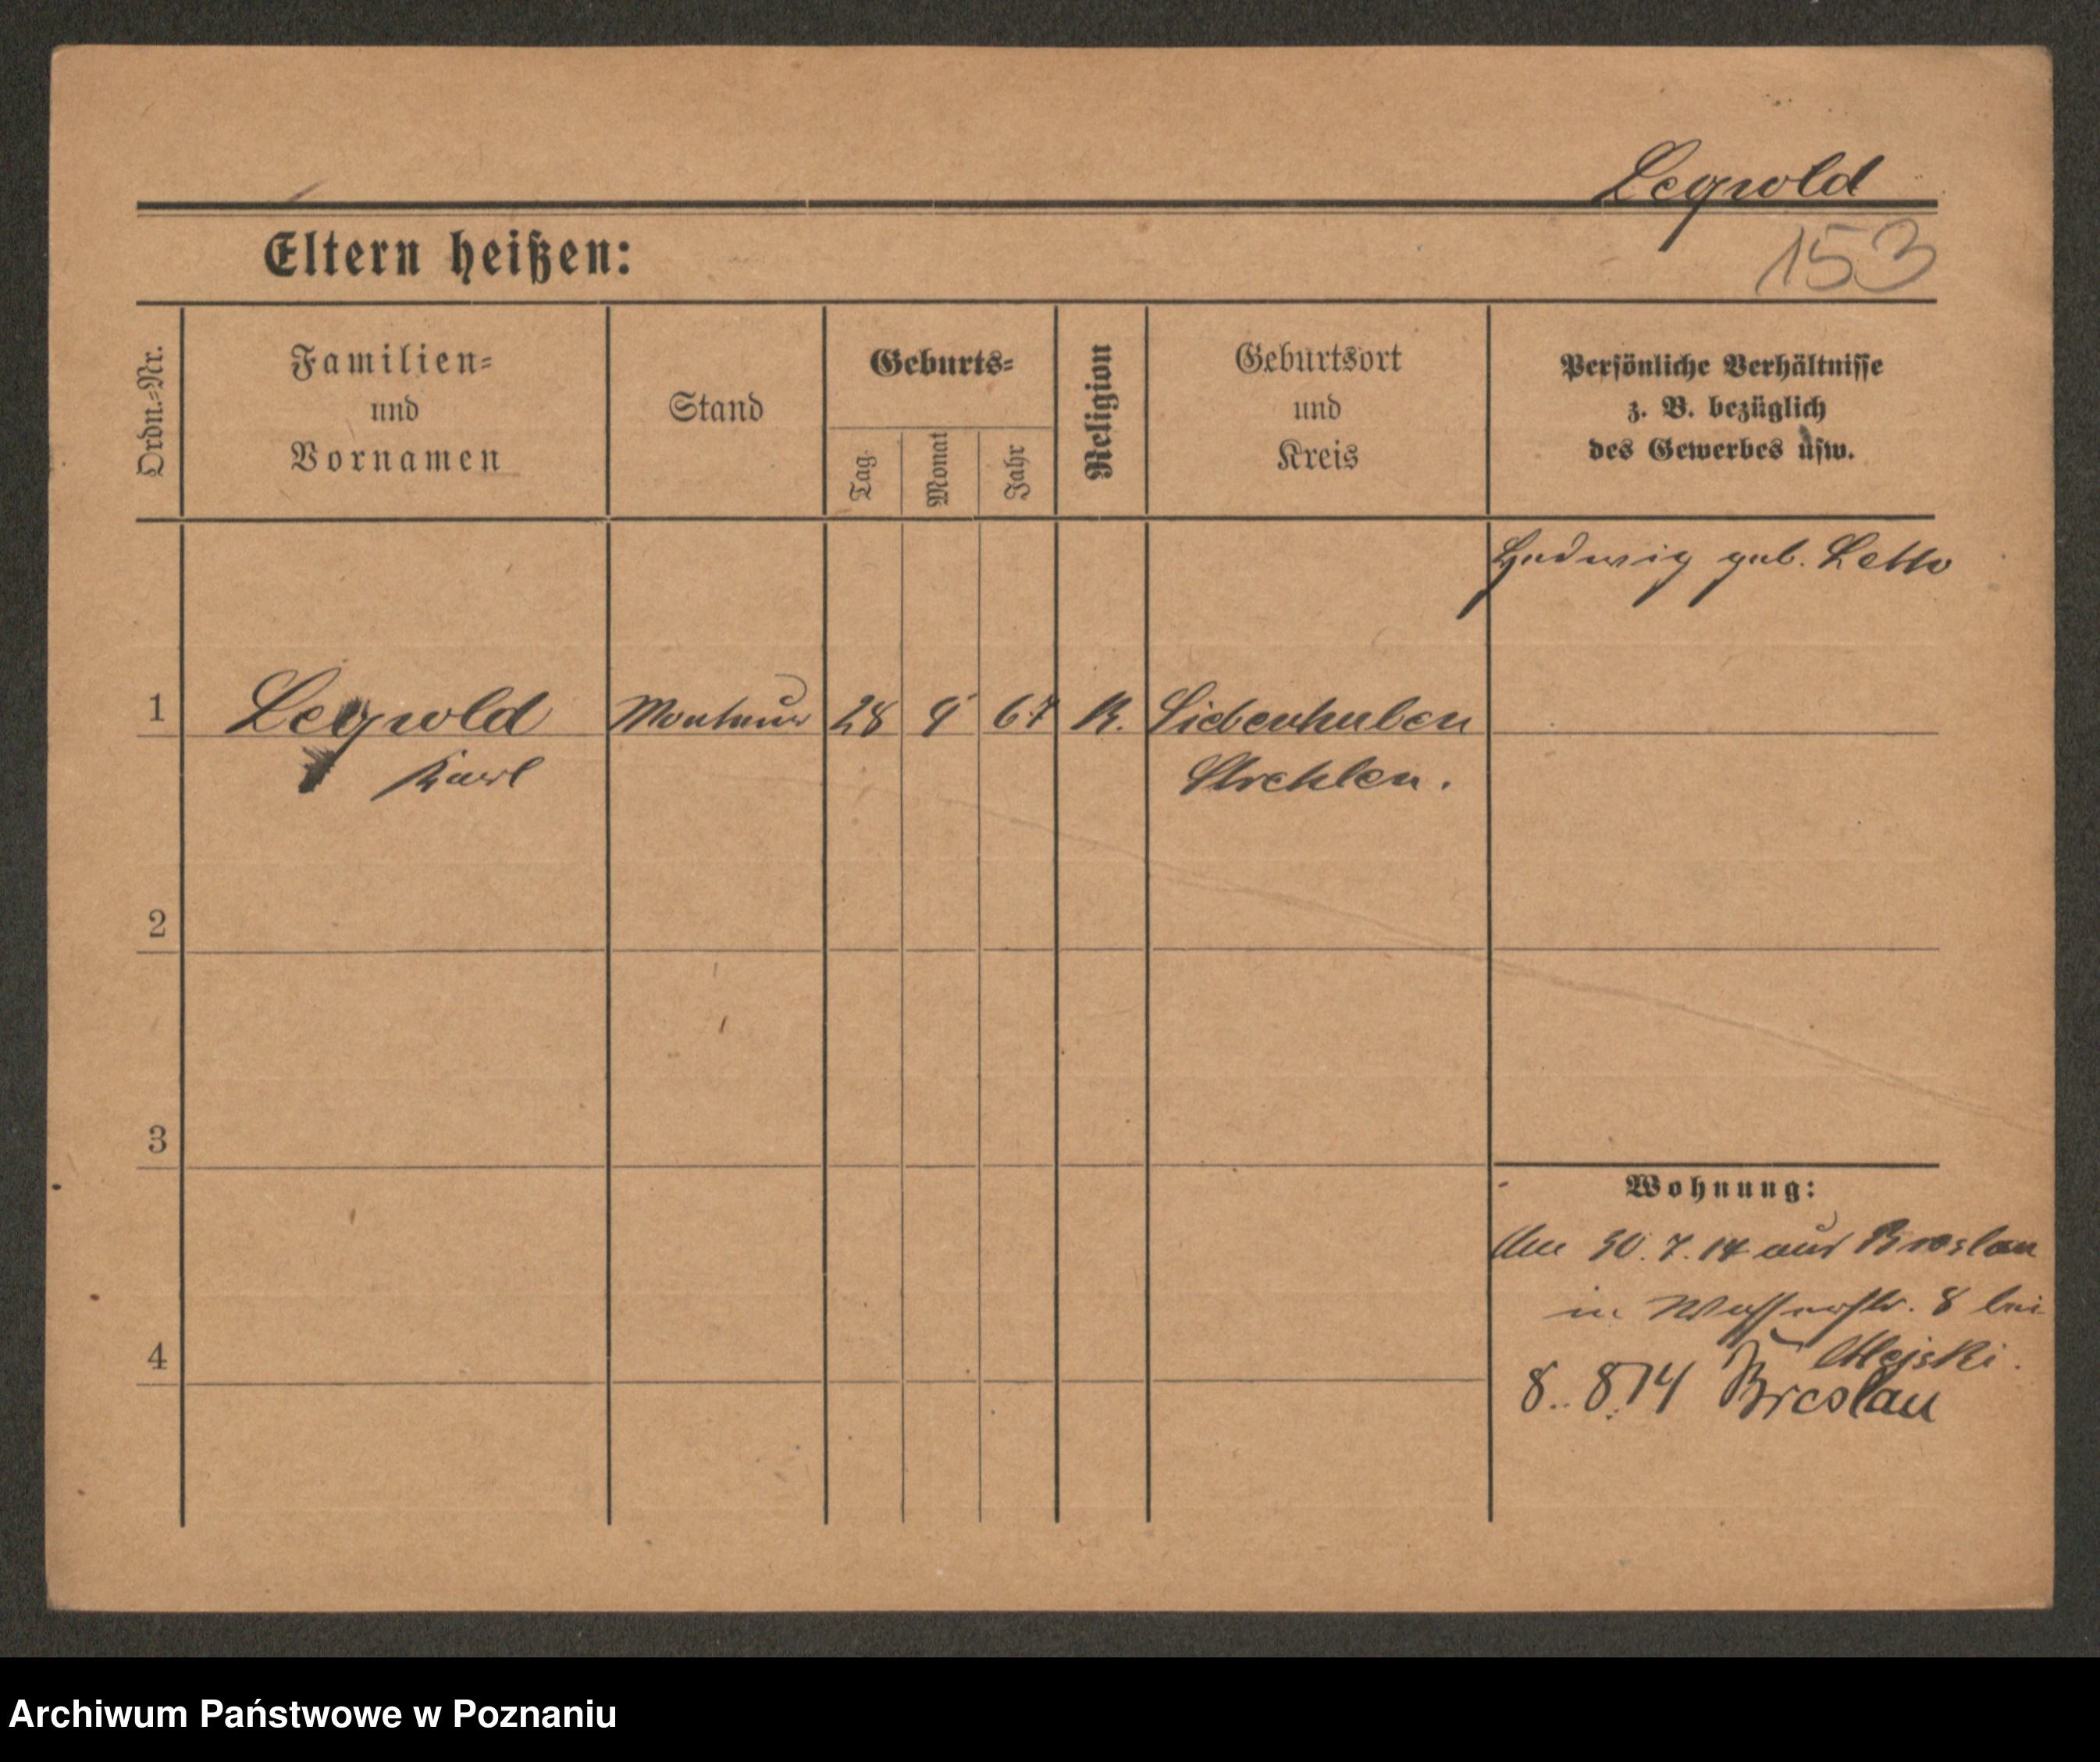 Legwold
153
Eltern heißen:
Ordn.=Nr.
Familien=
und
Vornamen
Stand
Geburts=
Tag
Monat
Jahr
Religion
Geburtsort
und
Kreis
Persönliche Verhältnisse
z. B. bezüglich
des Gewerbes usw.
Hedwig geb. Letto
1 Legwold Monteur 28 9 67 K. Siebenhuben
Karl Strehlen.
2
3
Wohnung:
Am 30. 7. 14 aus Breslau
in Wasserstr. 8 bei
4
8. 8. 14 Breslau
Archiwum Państwowe w Poznaniu